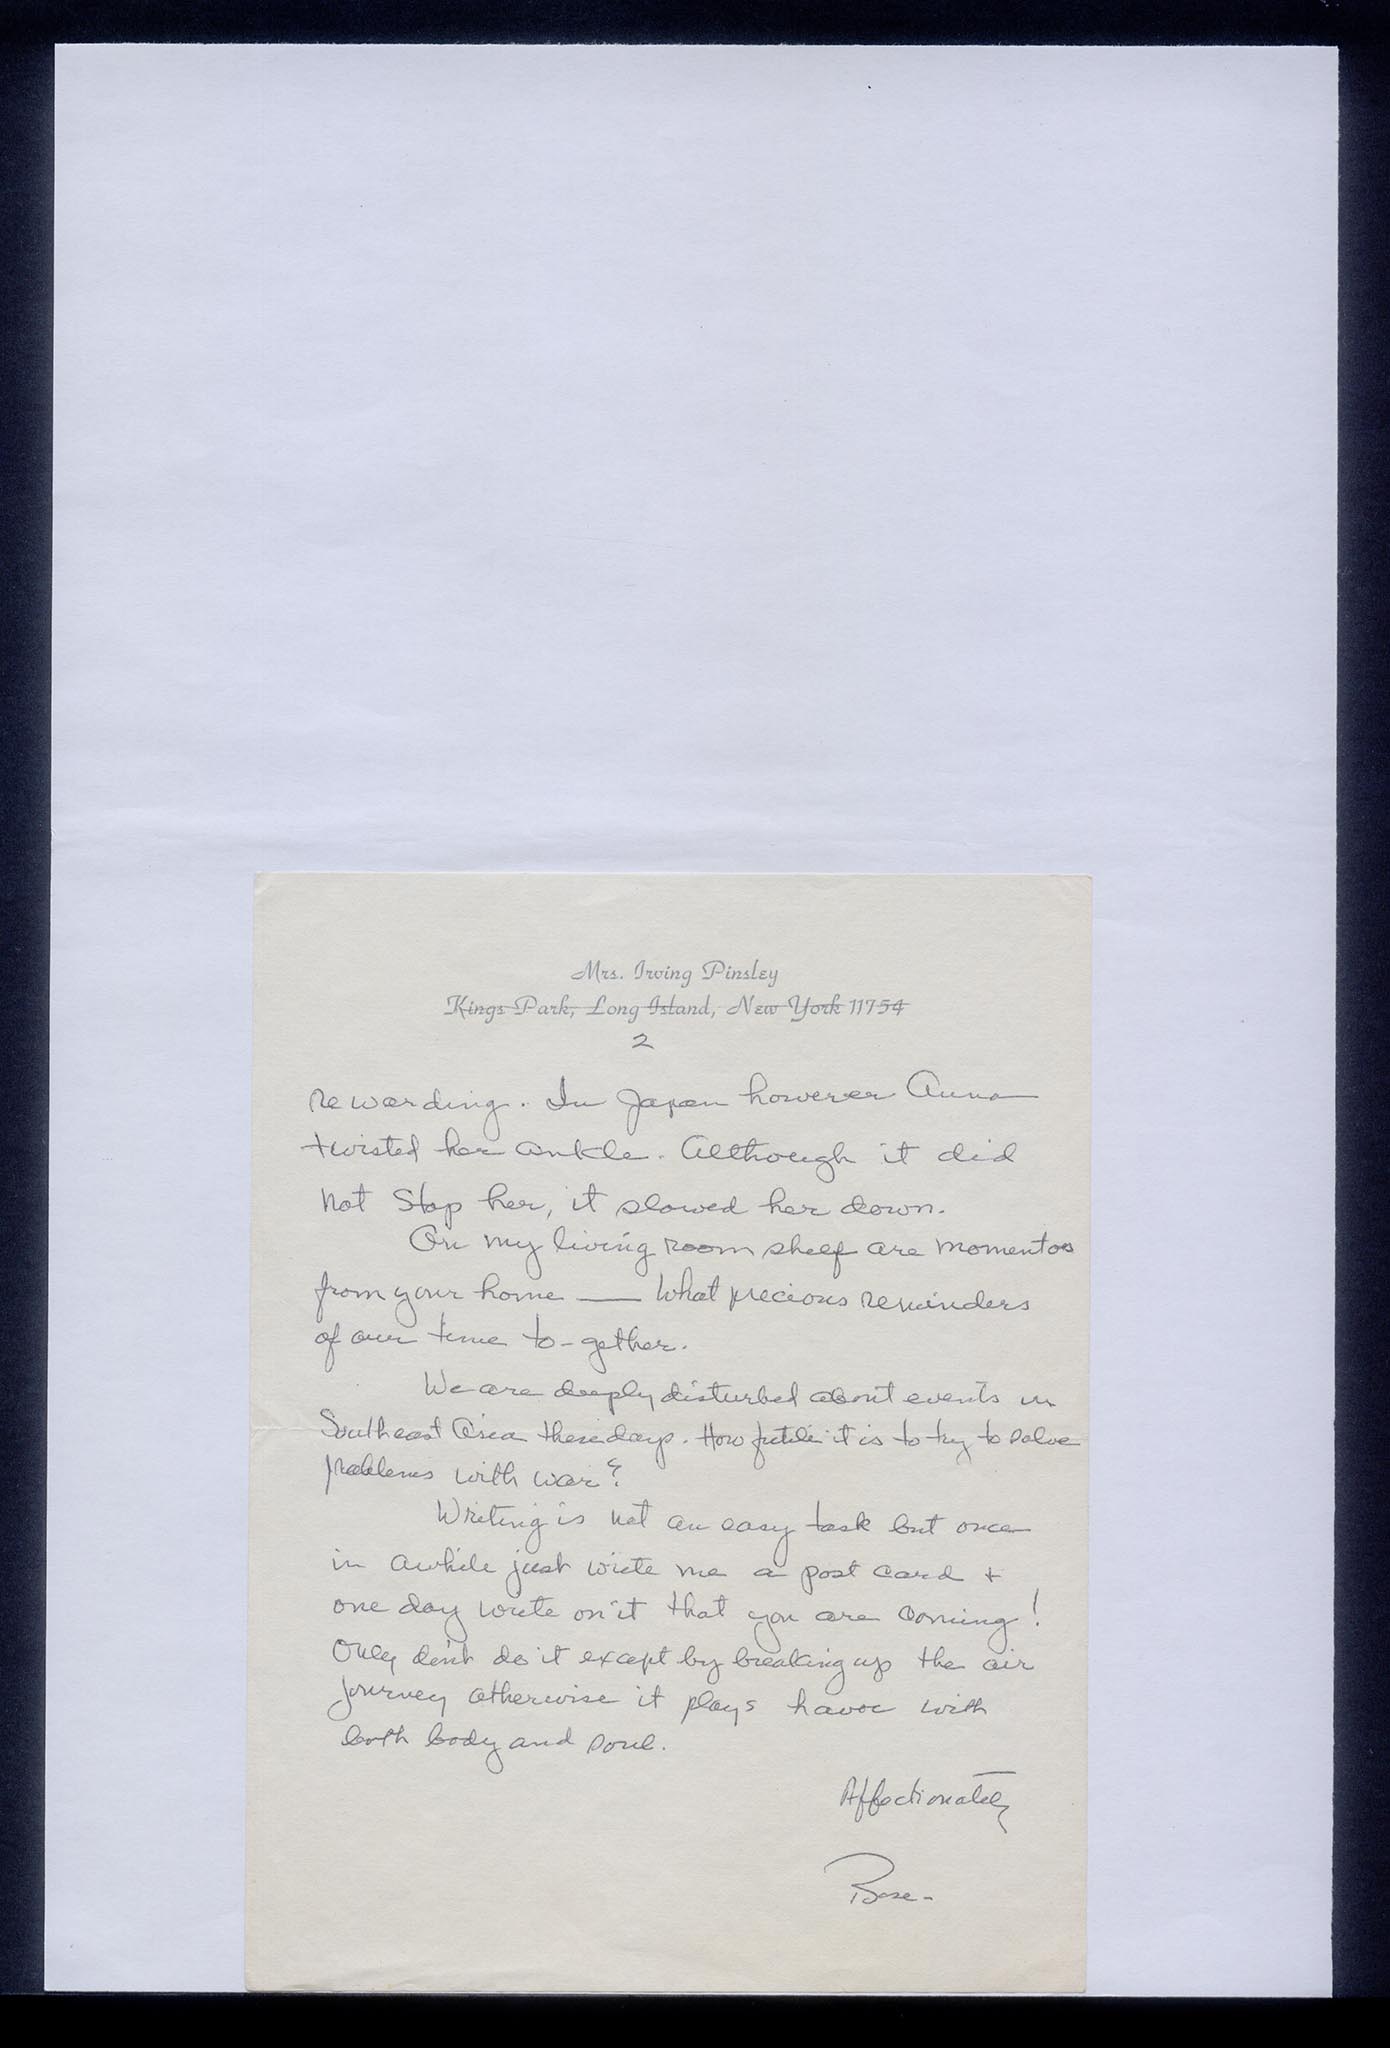 Mrs. Irving Pinsley
Kings Park, Long Island, New York 11754
2
rewarding. In Japan however Anna
twisted her ankle. Although it did
not stop her, it slowed her down.
On my living room shelf are momentos
from your home — What precious reminders
of our time to-gether.
We are deeply disturbed about events in
Southeast Asia these days. How futile it is to try to solve
problems with war?
Writing is not an easy task but once
in awhile just write me a post card +
one day write on it that you are coming!
Only don't do it except by breaking up the air
journey otherwise it plays havoc with
both body and soul.
Affectionately